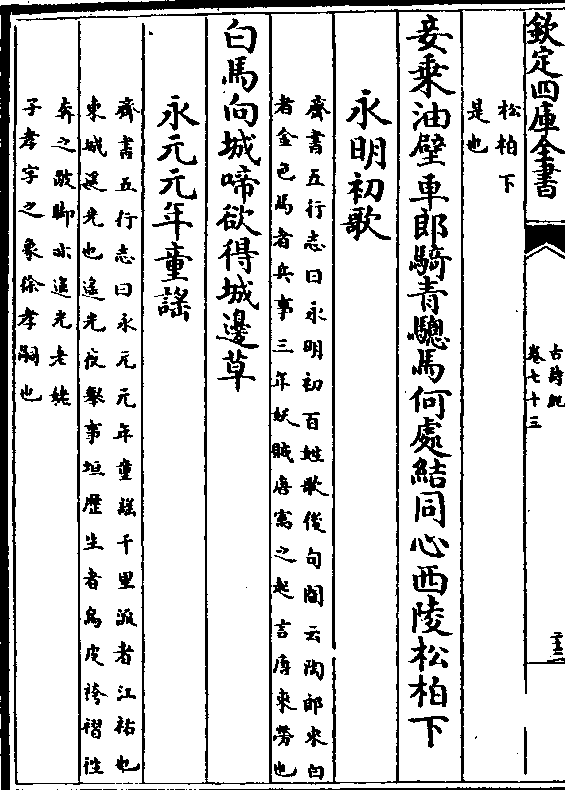 欽定四庫全書
古詩紀
卷七十三
松柏下
是也
妾乘油壁車郎騎青驄馬何處結同心西陵松柏下
永明初歌
齊書五行志曰永明初百姓歌後句閒云陶郎來白
者金色馬者兵事三年妖賊唐㝢之起言唐來勞也
白馬向城啼欲得城邊草
永元元年童謡
齊書五行志曰永元元年童謡千里流者江祏也
東城遥光也遥光夜舉事垣歴生者烏皮袴褶往
奔之跛脚亦遥光老姥
子孝字之象徐孝嗣也